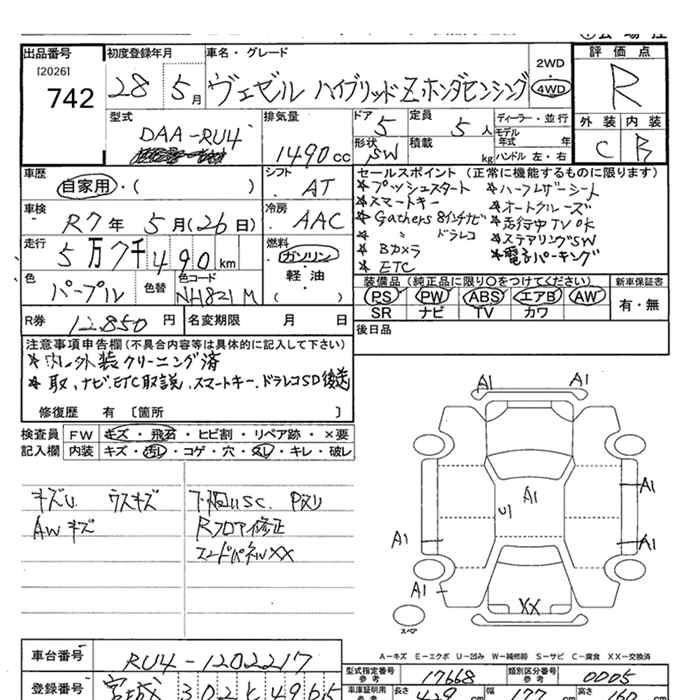 出品番号
[2026]
742
初度登録年月
28 5月
車名・グレード
ヴェゼル ハイブリッドZホンダセンシング
2WD
4WD
評価点
R
外装 内装
C B
型式
DAA-RU4
排気量
1490cc
ドア
5
形状
SW
定員
5人
積載
kg
ディーラー・並行
モデル
年式 年
ハンドル 左・右
車歴
自家用・( )
シフト
AT
車検
R7年5月(26日)
冷房
AAC
走行
5万7千490km
燃料
ガソリン
軽・油
( )
色
パープル
色替
色コード
NH821M
R券 12,850円
名変期限 月 日
セールスポイント (正常に機能するものに限ります)
*プッシュスタート
*スマートキー
*Gathers 8インチナビ
* 〃 ドラレコ
*Bカメラ
*ETC
*ハーフレザーシート
*オートクルーズ
*走行中TV OK
*ステアリングSW
*電子パーキング
装備品 (純正品に限り○をつけてください)
PS PW ABS エアB AW
SR ナビ TV カワ
新車保証書
有・無
後日品
注意事項申告欄(不具合内容等は具体的に記入して下さい)
*内・外装クリーニング済
*取、ナビ、ETC取説、スマートキー、ドラレコSD後送
修復歴 有 〔箇所 〕
検査員
記入欄
FW キズ・飛石・ヒビ割・リペア跡・×要
内装 キズ・汚レ・コゲ・穴・スレ・キレ・破レ
キズU ウスキズ
AWキズ
下廻りSC. Pヌリ
Rフロア修正
エンドパネルXX
A1 A1
A1
U1
A1
A1 A1
A1
XX
スペア
A-キズ E-エクボ U-凹み W-補修跡 S-サビ C-腐食 XX-交換済
車台番号
RU4-1202217
登録番号
宮城 302
型式指定番号
参考
17668
類別区分番号
参考
0005
車庫証明用
参考
長さ
幅
高さ